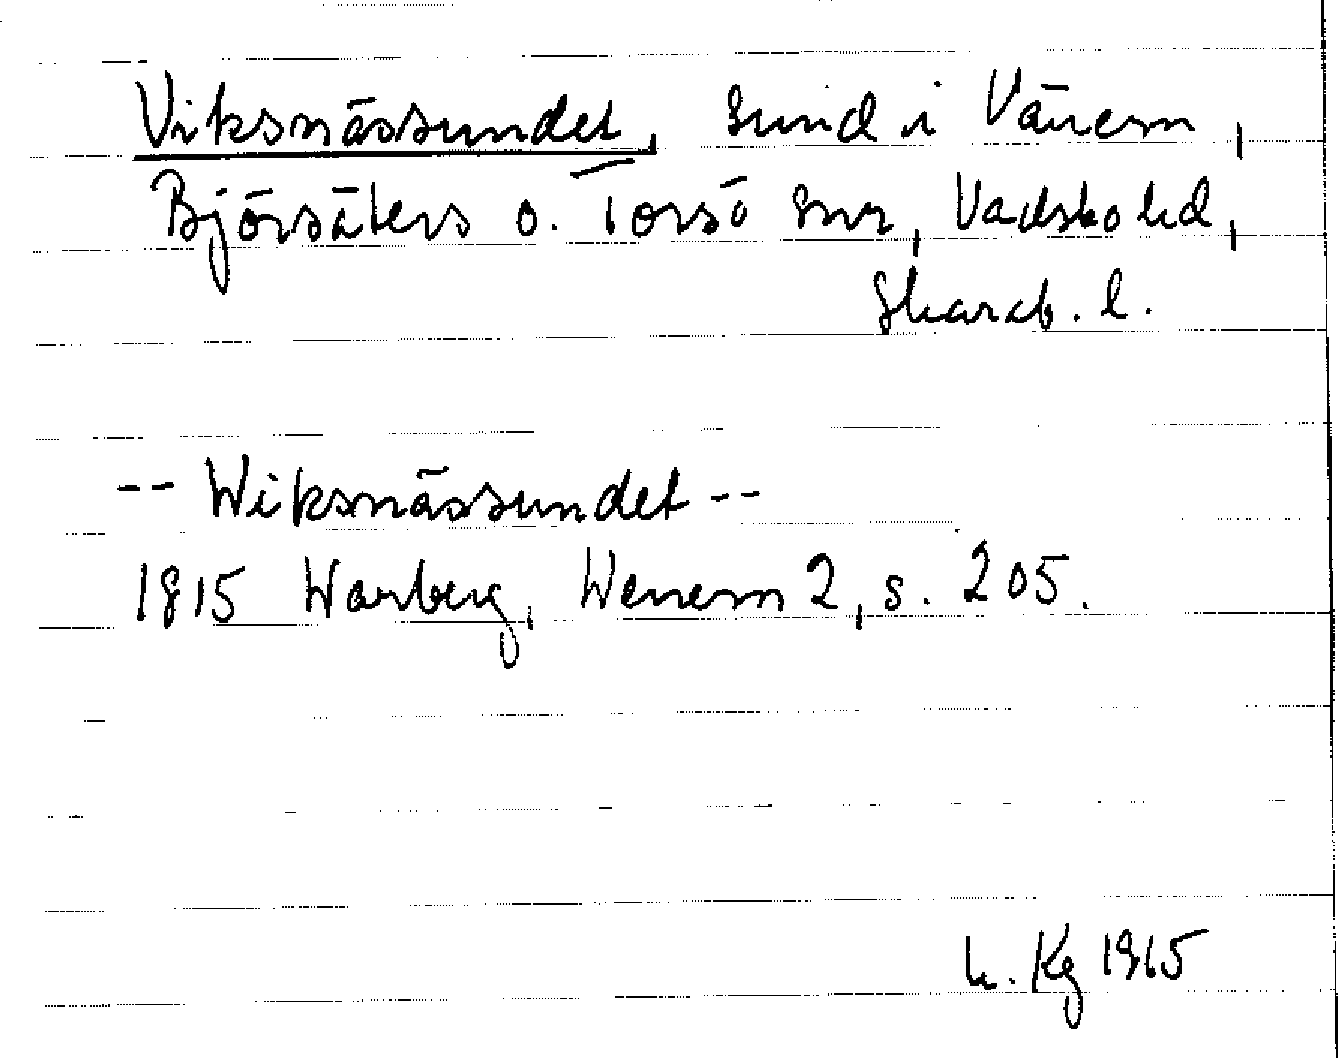 Viksnässundet, sund i Vänern,
Björsäters o. Torsö snr, Vadsbo hd,
Skarab. l.
-- Wiksnässundet --
1815 Warberg, Wenern 2, s. 205.
Kg 1965